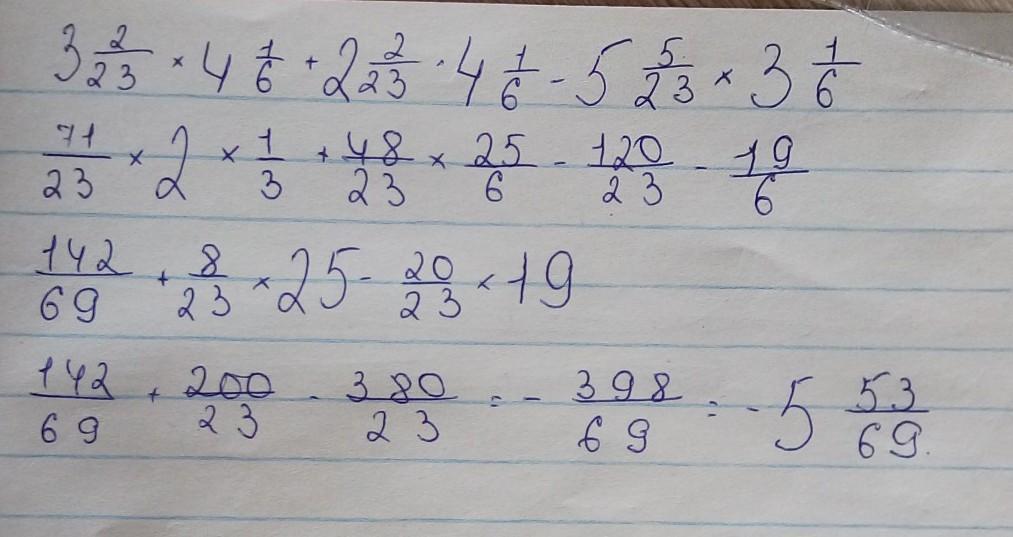 3 2/23 × 4 1/6 + 2 2/23 · 4 1/6 - 5 5/23 × 3 1/6
71/23 × 2 × 1/3 + 48/23 × 25/6 - 120/23 - 19/6
142/69 + 8/23 × 25 - 20/23 × 19
142/69 + 200/23 - 380/23 = - 398/69 = - 5 53/69.